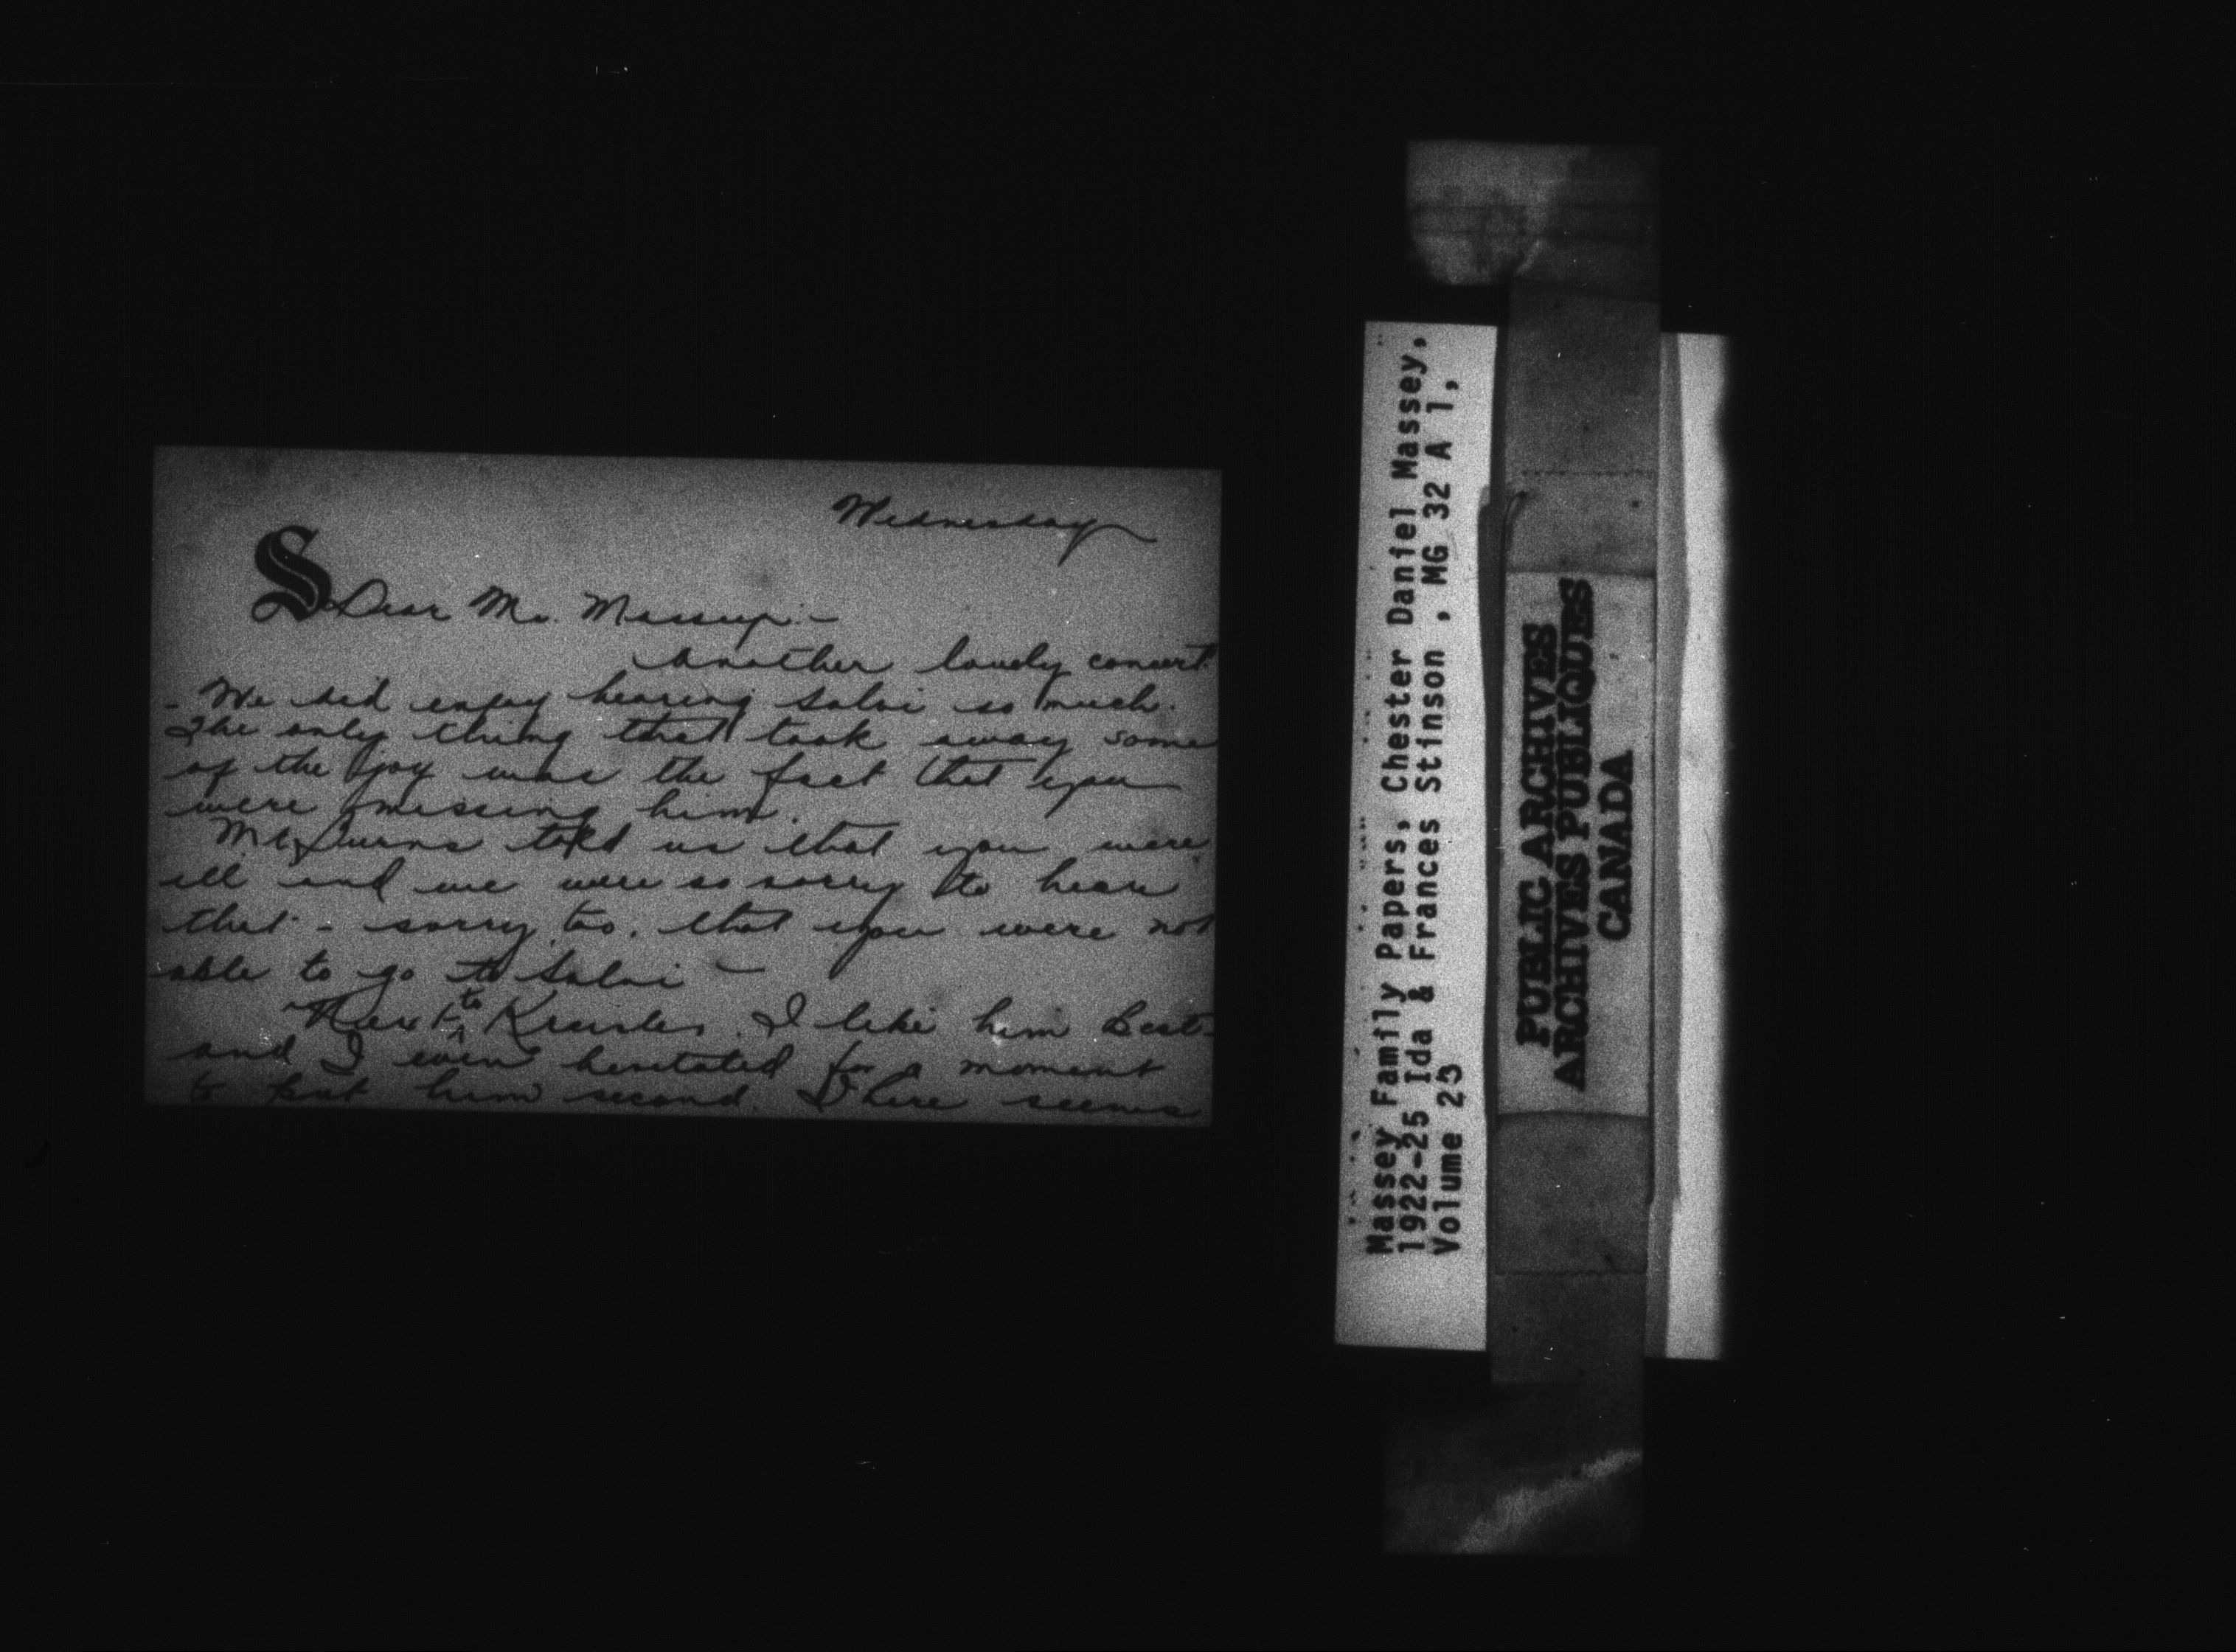 Wednesday
S
Dear Mr. Massey:-
Another lovely concert
- We did enjoy hearing Salvi so much.
The only thing that took away some
of the joy was the fact that you
were missing him.
Mr Burns told us that you were
ill and we were so sorry to hear
that - sorry, too, that you were not
able to go to Salvi -
Next to Kreisler, I like him best -
and I even hesitated for a moment
to put him second. There seems
Massey Family Papers, Chester Daniel Massey,
1922-25 Ida & Frances Stinson , MG 32 A 1,
Volume 23
PUBLIC ARCHIVES
ARCHIVES PUBLIQUES
CANADA